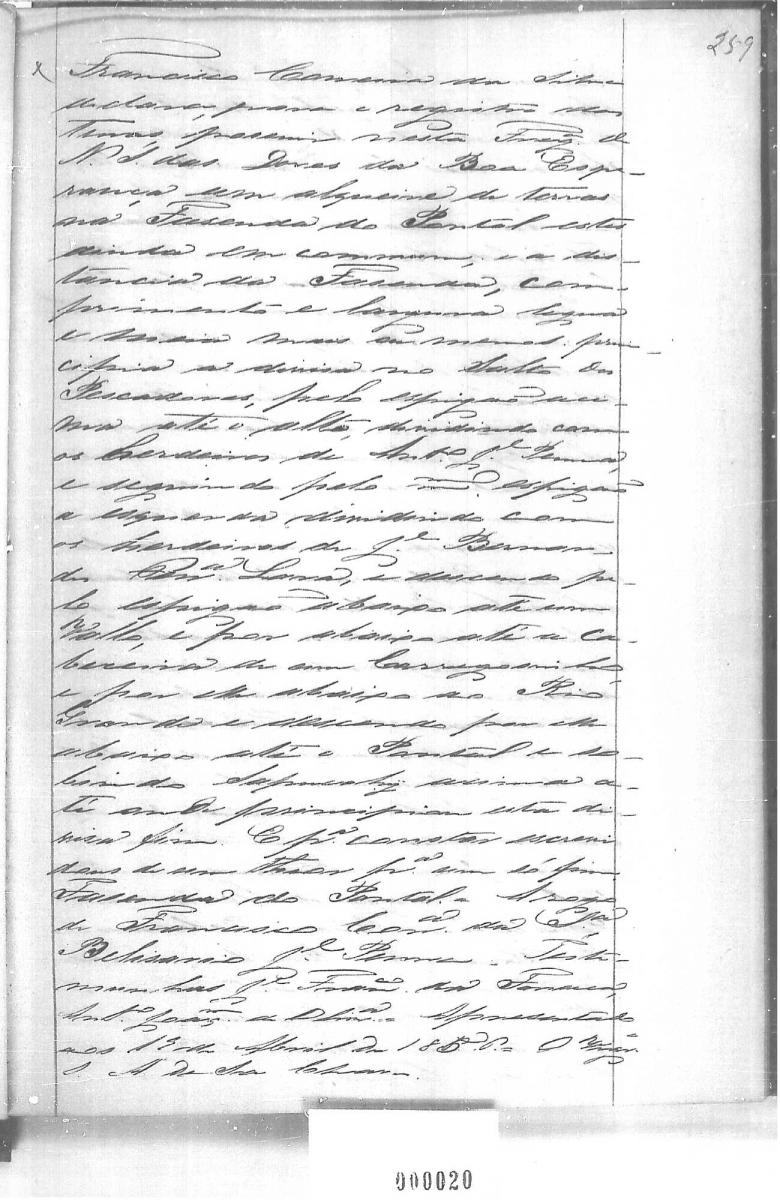 259
x Francisco Correia da Silva
declara, para o registro das
terras, possuir nesta Freg.ª de
N. S. das Dores da Boa Espe-
rança um alqueire de terras
na Fazenda do Pontal estes
ainda em commum, e a dis-
tancia da Fazenda, com-
primento e largura legua
e meia mais ou menos: prin-
cipia a divisa no Salto dos
Pescadores, pelo espigão aci-
ma até o alto, dividindo com
os herdeiros de Ant.º J.e Penna,
e seguindo pelo m.mo espigão
a esquerda dividindo com
os herdeiros de J.e Bernar
des Lara, e descendo pe-
lo espigão abaixo até um
Vallo, e por abaixo até a ca-
beceira de um Corregosinho,
e por elle abaixo ao Rio
Grande e descendo por elle
abaixo até o Pontal e so-
bindo Sapucahy acima a-
té onde principiou esta di-
visa fim. E p.ª constar escrevi
dous de um theor p.ª um só fim
Fazenda do Pontal. Arogo
de Francisco Cor.ª da S.ª
Belisario J.e Penna. Teste-
munhas J.e Fran.co da Fonseca,
Ant.º Joaq.m de Olivr.ª Apresentado
aos 13 de Abril de 1856. O Vigr.º
000020